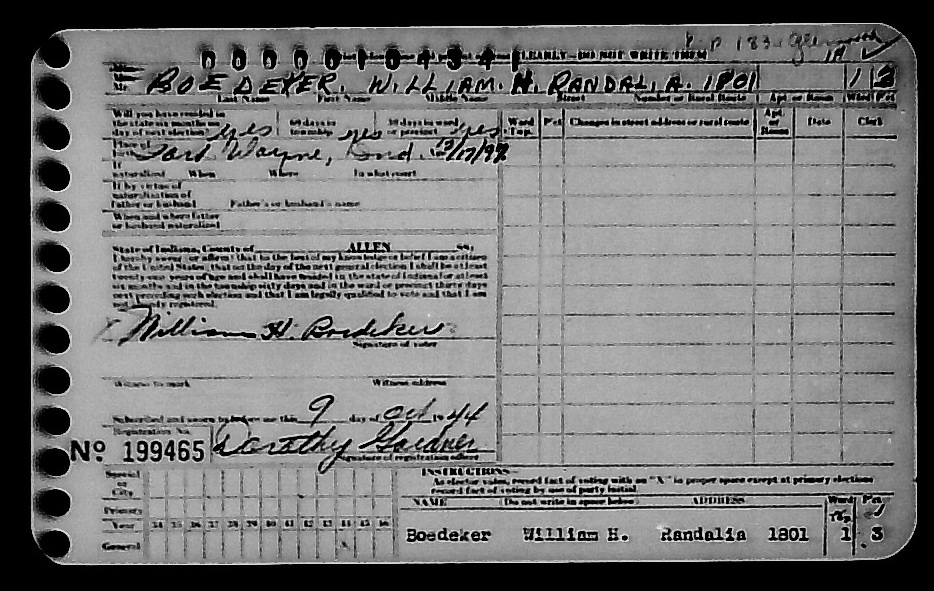 183 Glenwood
0000010434 CLEARLY—DO NOT WRITE THEM
Mr BOEDEKER, WILLIAM. H. RANDALIA. 1801 1 3
Last Name First Name Middle Name Street Number or Rural Route Apt. or Room Ward Pct
Will you have resided in the state six months on day of next election yes 60 days in township yes 30 days in ward or precinct yes
Ward Twp. Pct Changes in street address or rural route Apt. or Room Date Clerk
Place of Fort Wayne, Ind.
If naturalized When Where In what court
If by virtue of naturalization of Father or husband Father's or husband's name
When and where father or husband naturalized
State of Indiana, County of ALLEN ss:
I hereby swear (or affirm) that to the best of my knowledge or belief I am a citizen
of the United States; that on the day of the next general election I shall be at least
twenty-one years of age and shall have resided in the state of Indiana for at least
six months and in the township sixty days and in the ward or precinct thirty days
next preceding such election and that I am legally qualified to vote and that I am
not registered.
William H. Boedeker
Signature of voter
Witness to mark Witness address
Subscribed and sworn to before me this 9 day of Oct 1944
Registration No.
Nº 199465 Dorothy Gardner
Signature of registration officer
Special or City
Primary
Year 34 35 36 37 38 39 40 41 42 43 44 45 46
General
INSTRUCTIONS
As elector votes, record fact of voting with an "X" in proper space except at primary elections
record fact of voting by use of party initial.
NAME (Do not write in space below) ADDRESS Ward Pct
Twp.
Boedeker William H. Randalia 1801 1 3